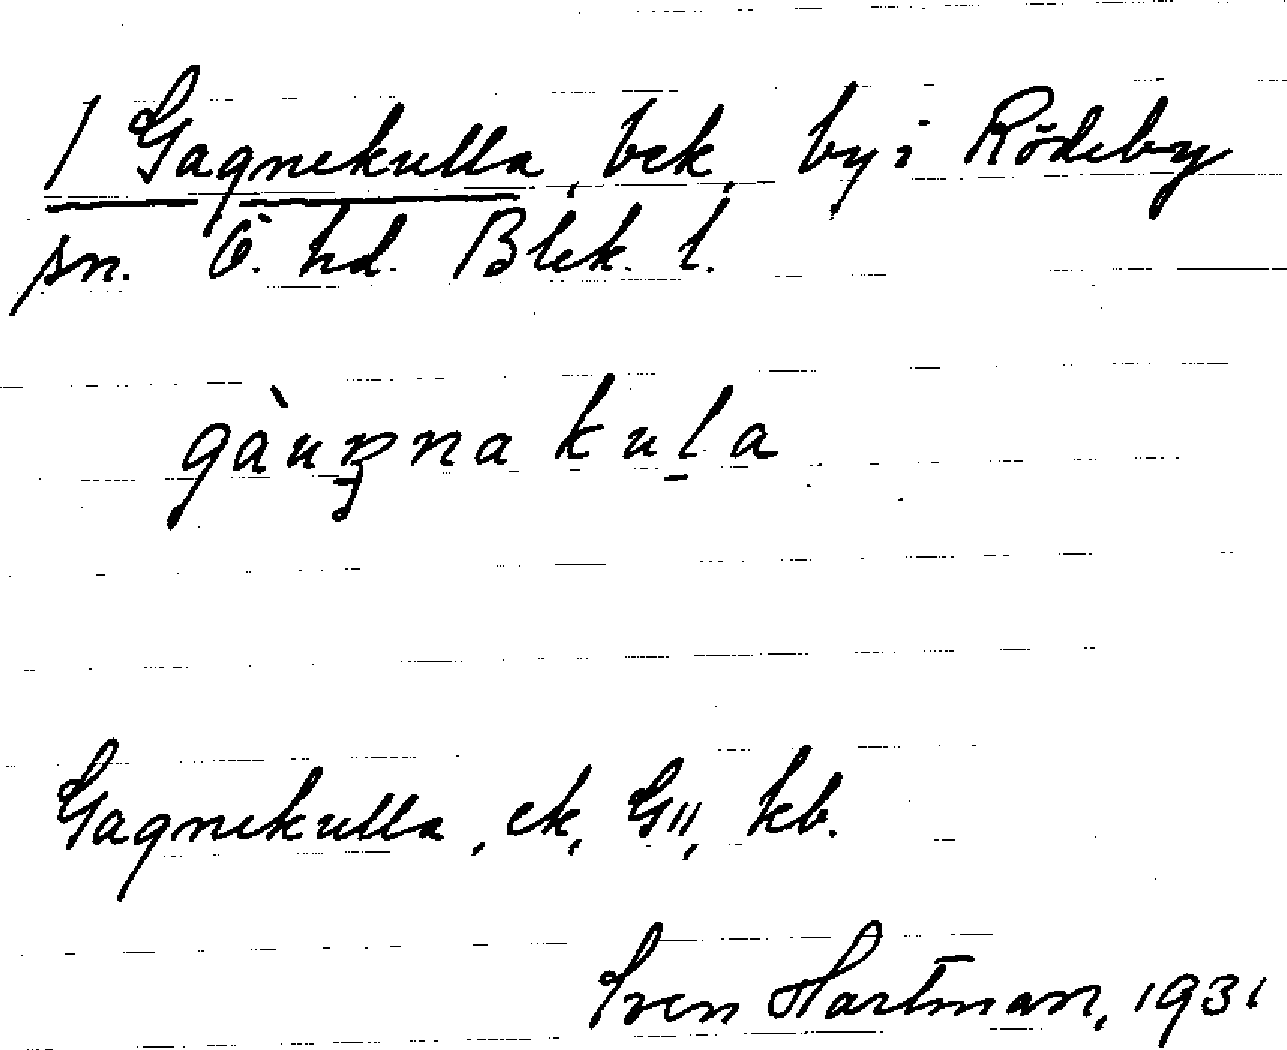 / Gagnekulla, bek, by i Rödeby
sn. Ö. hd. Blek. l.
gàuŋna kula
Gagnekulla, ek, G11, kb.
Sven Hartman, 1931